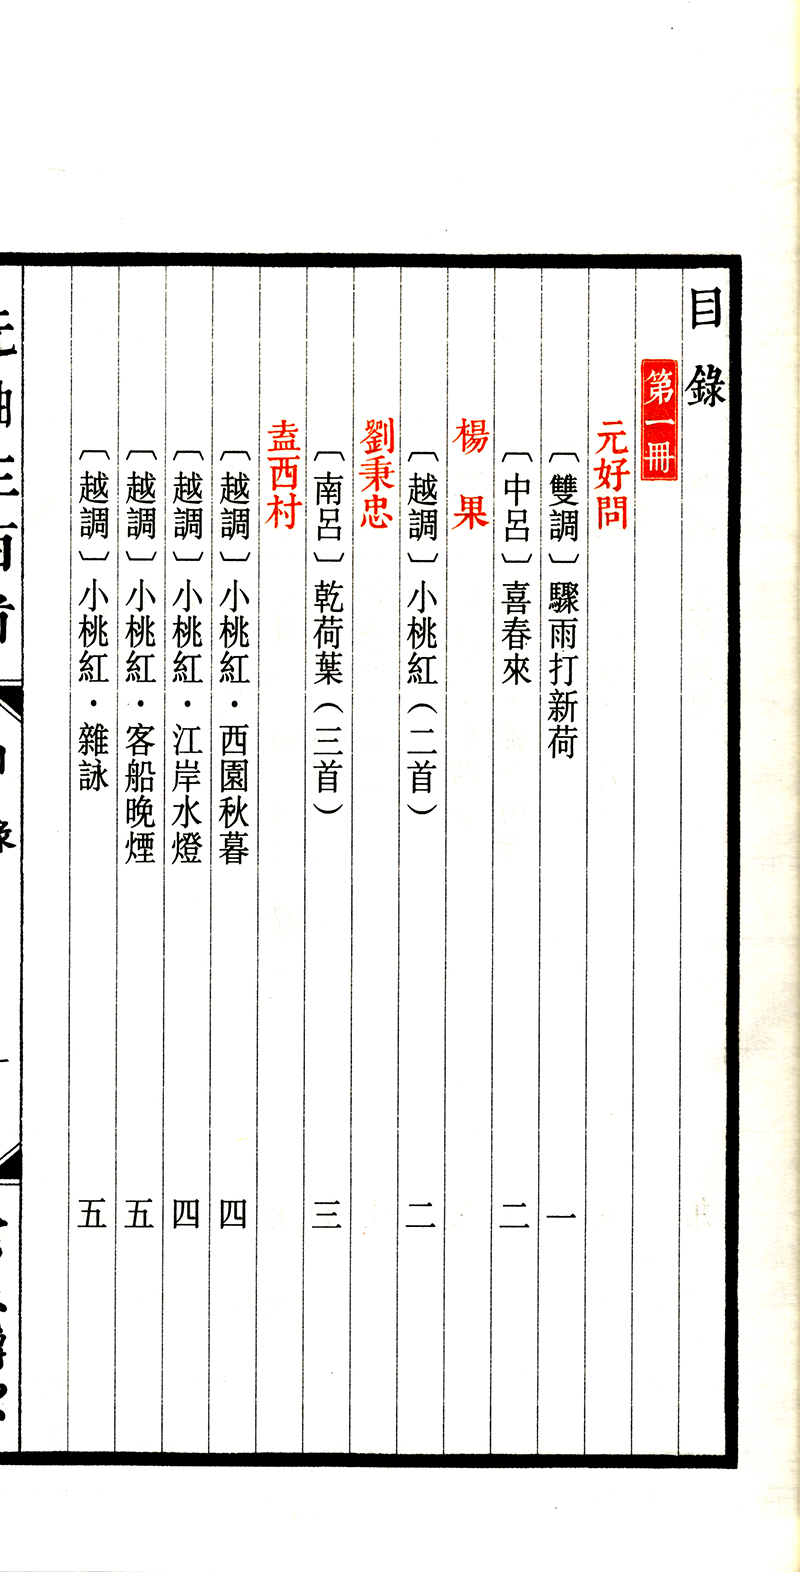 目錄
第一冊
元好問
〔雙調〕驟雨打新荷 一
〔中呂〕喜春來 二
楊果
〔越調〕小桃紅（二首） 二
劉秉忠
〔南呂〕乾荷葉（三首） 三
盍西村
〔越調〕小桃紅・西園秋暮 四
〔越調〕小桃紅・江岸水燈 四
〔越調〕小桃紅・客船晚煙 五
〔越調〕小桃紅・雜詠 五